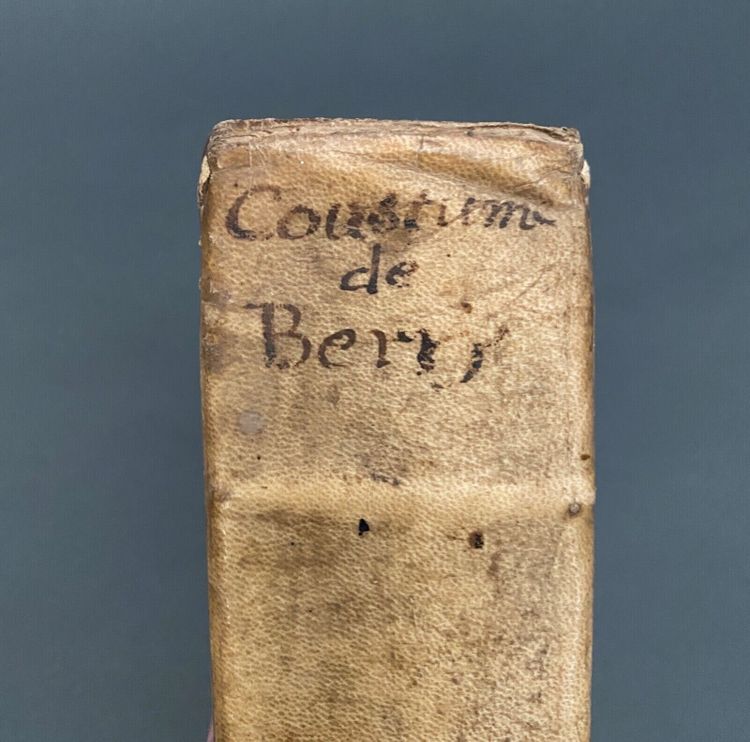 Coustume
de
Berry